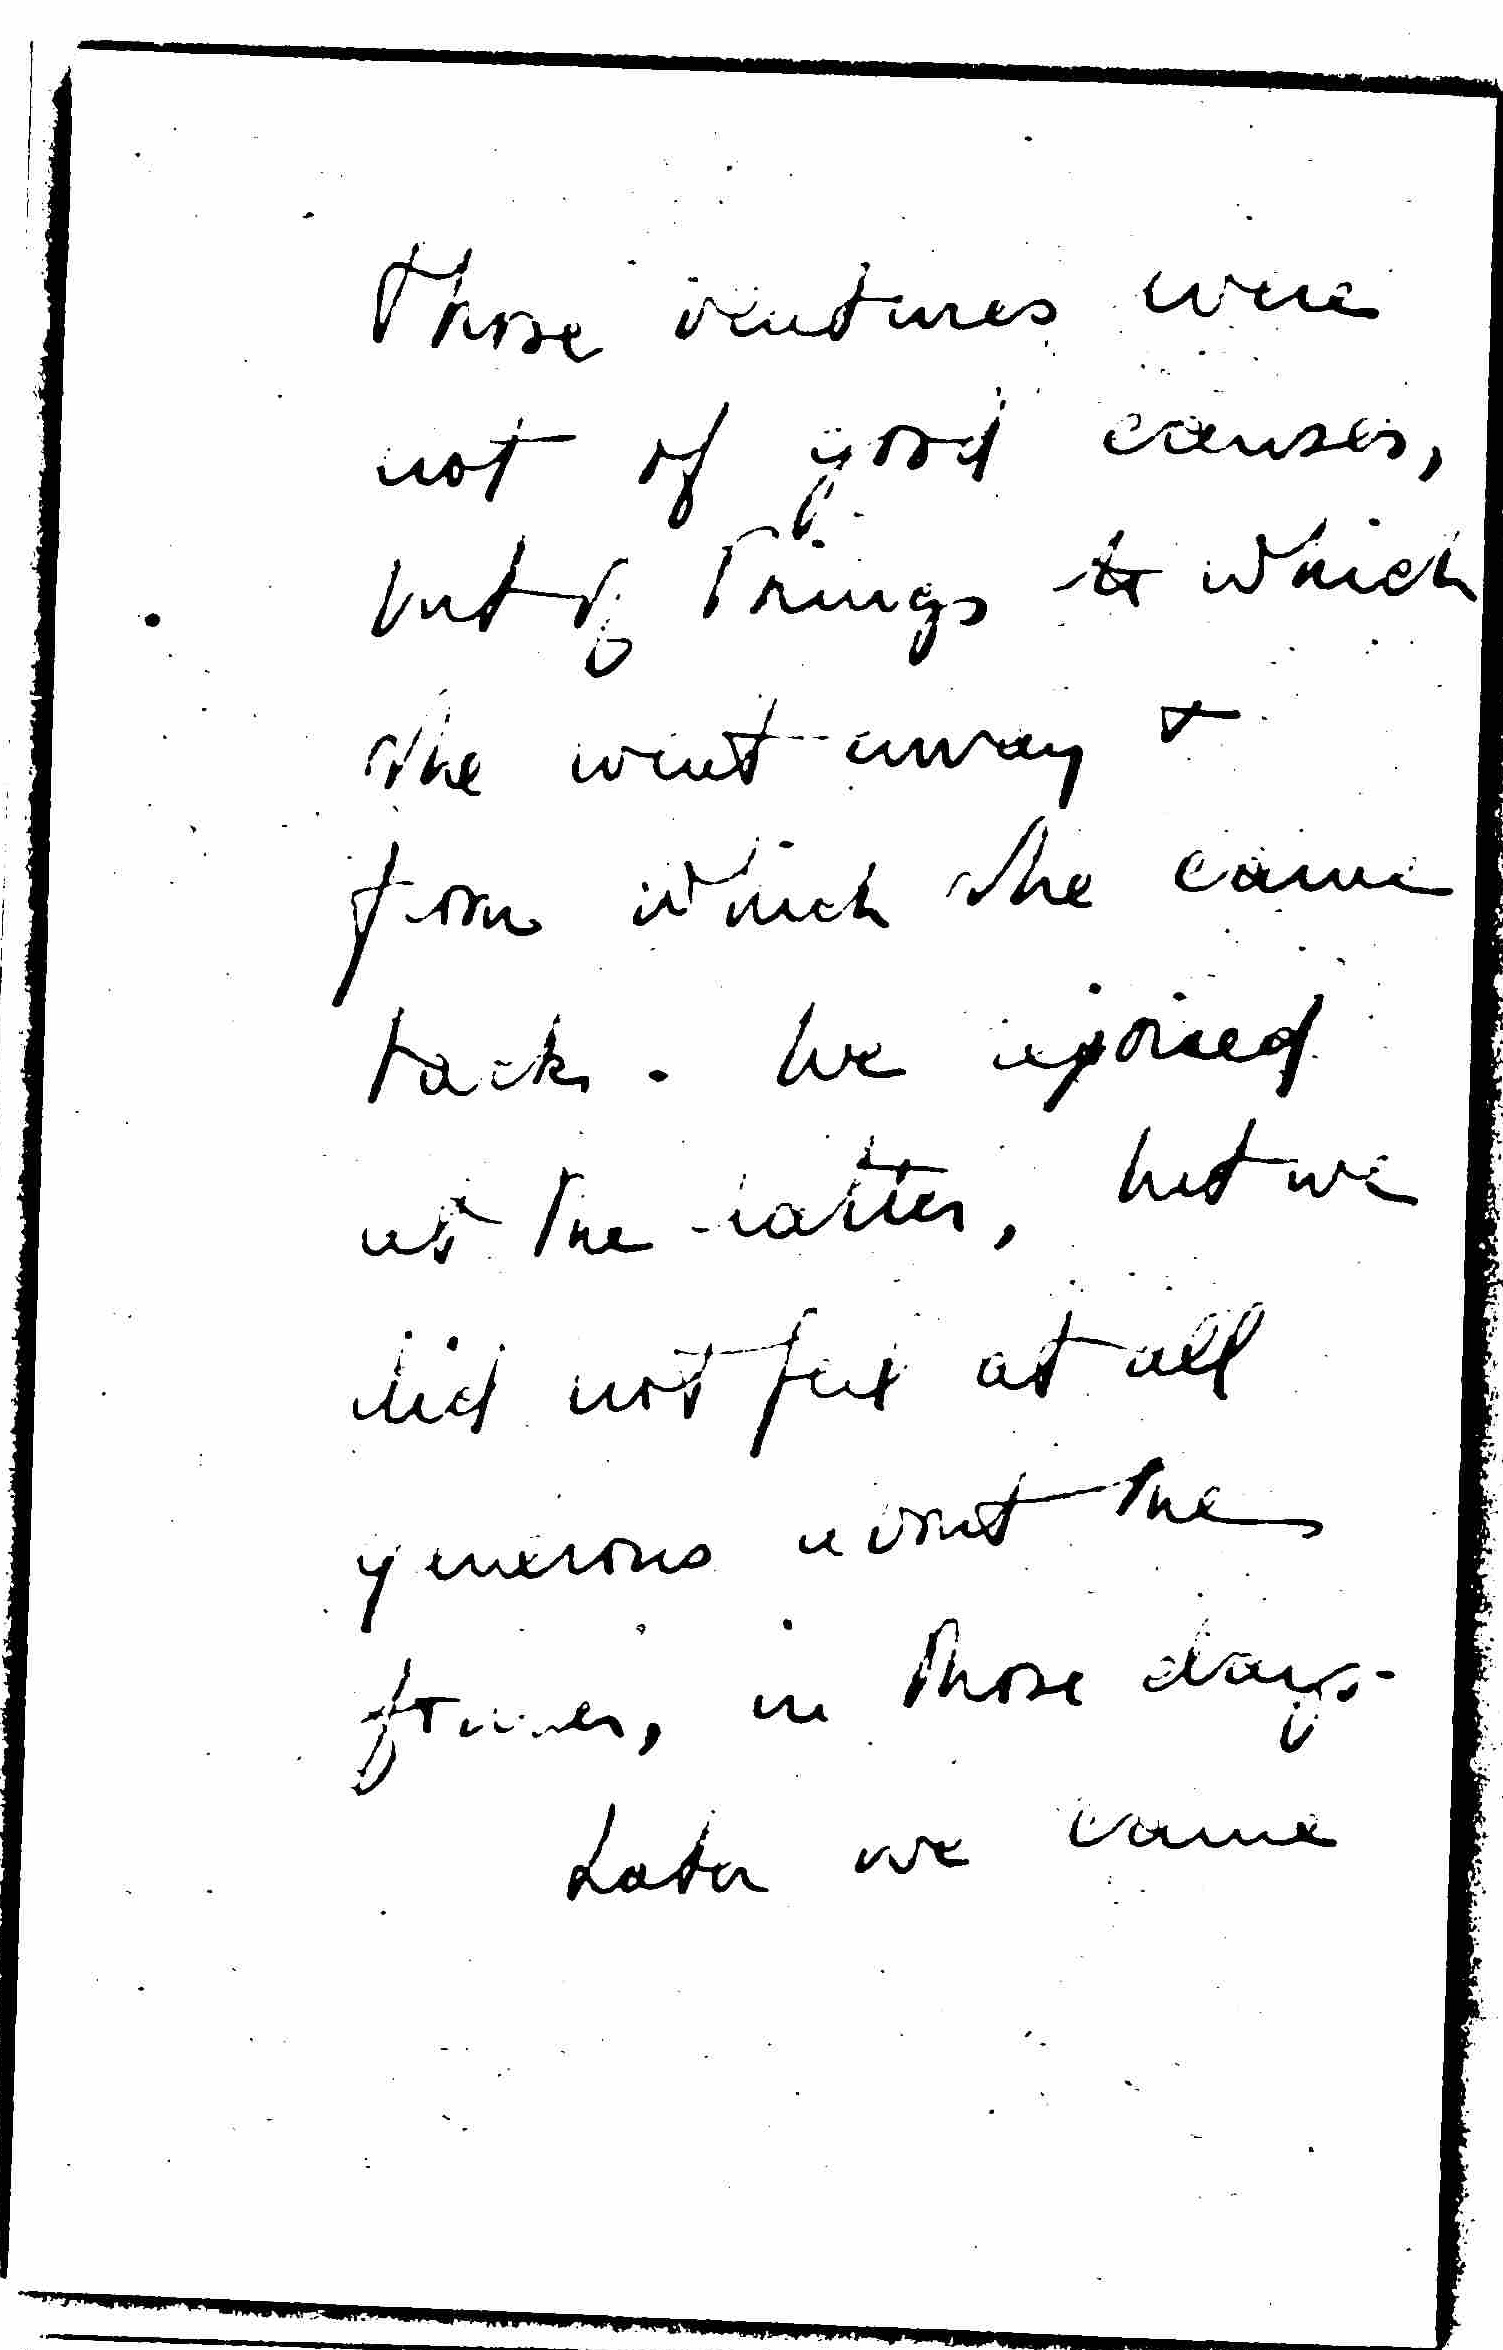 Those ventures were
not of good causes,
but of things to which
she went away &
from which she came
back. We rejoiced
at the latter, but we
did not feel at all
generous about the
former, in those days.
Later we came